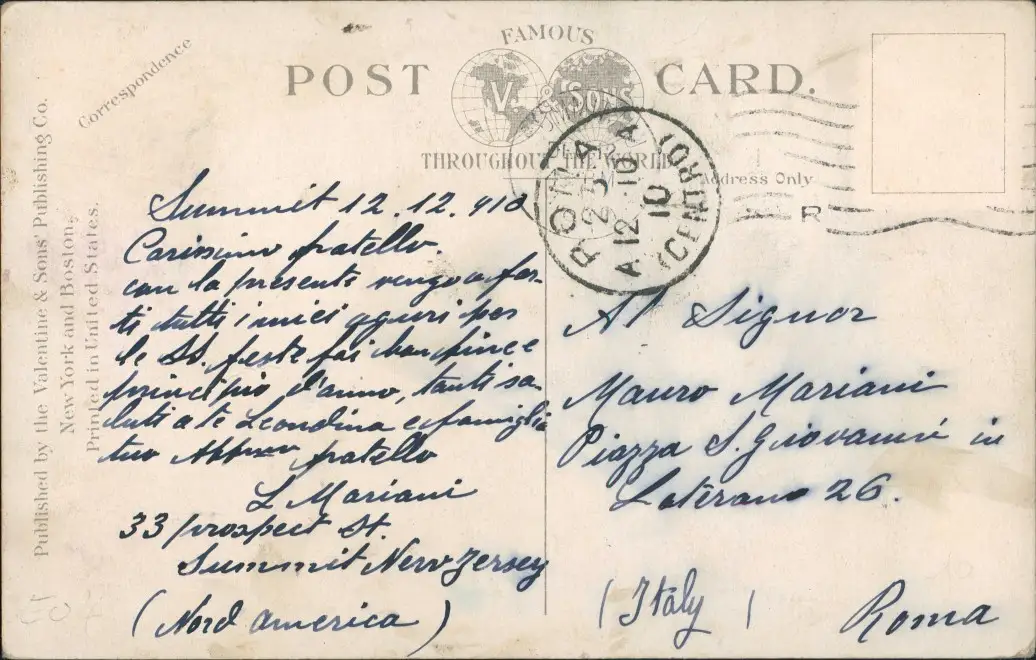 FAMOUS
POST CARD.
V. & SONS
THROUGHOUT THE WORLD
Correspondence
Address Only
Published by the Valentine & Sons' Publishing Co.
New York and Boston.
Printed in United States.
ROMA
(CENTRO)
23
12-10
A 12 10
R
Summit 12.12.910
Carissimo fratello.
con la presente vengo a far-
ti tutti i miei aguri per
le SS. feste fai buon fine e
principio d'anno, tanti sa-
luti a te Leondina e famiglia
tuo fratello
L Mariani
33 prospect St.
Summit New Jersey
(Nord america)
Al Signor
Mauro Mariani
Piazza S. Giovanni in
Laterano 26.
(Italy)
Roma